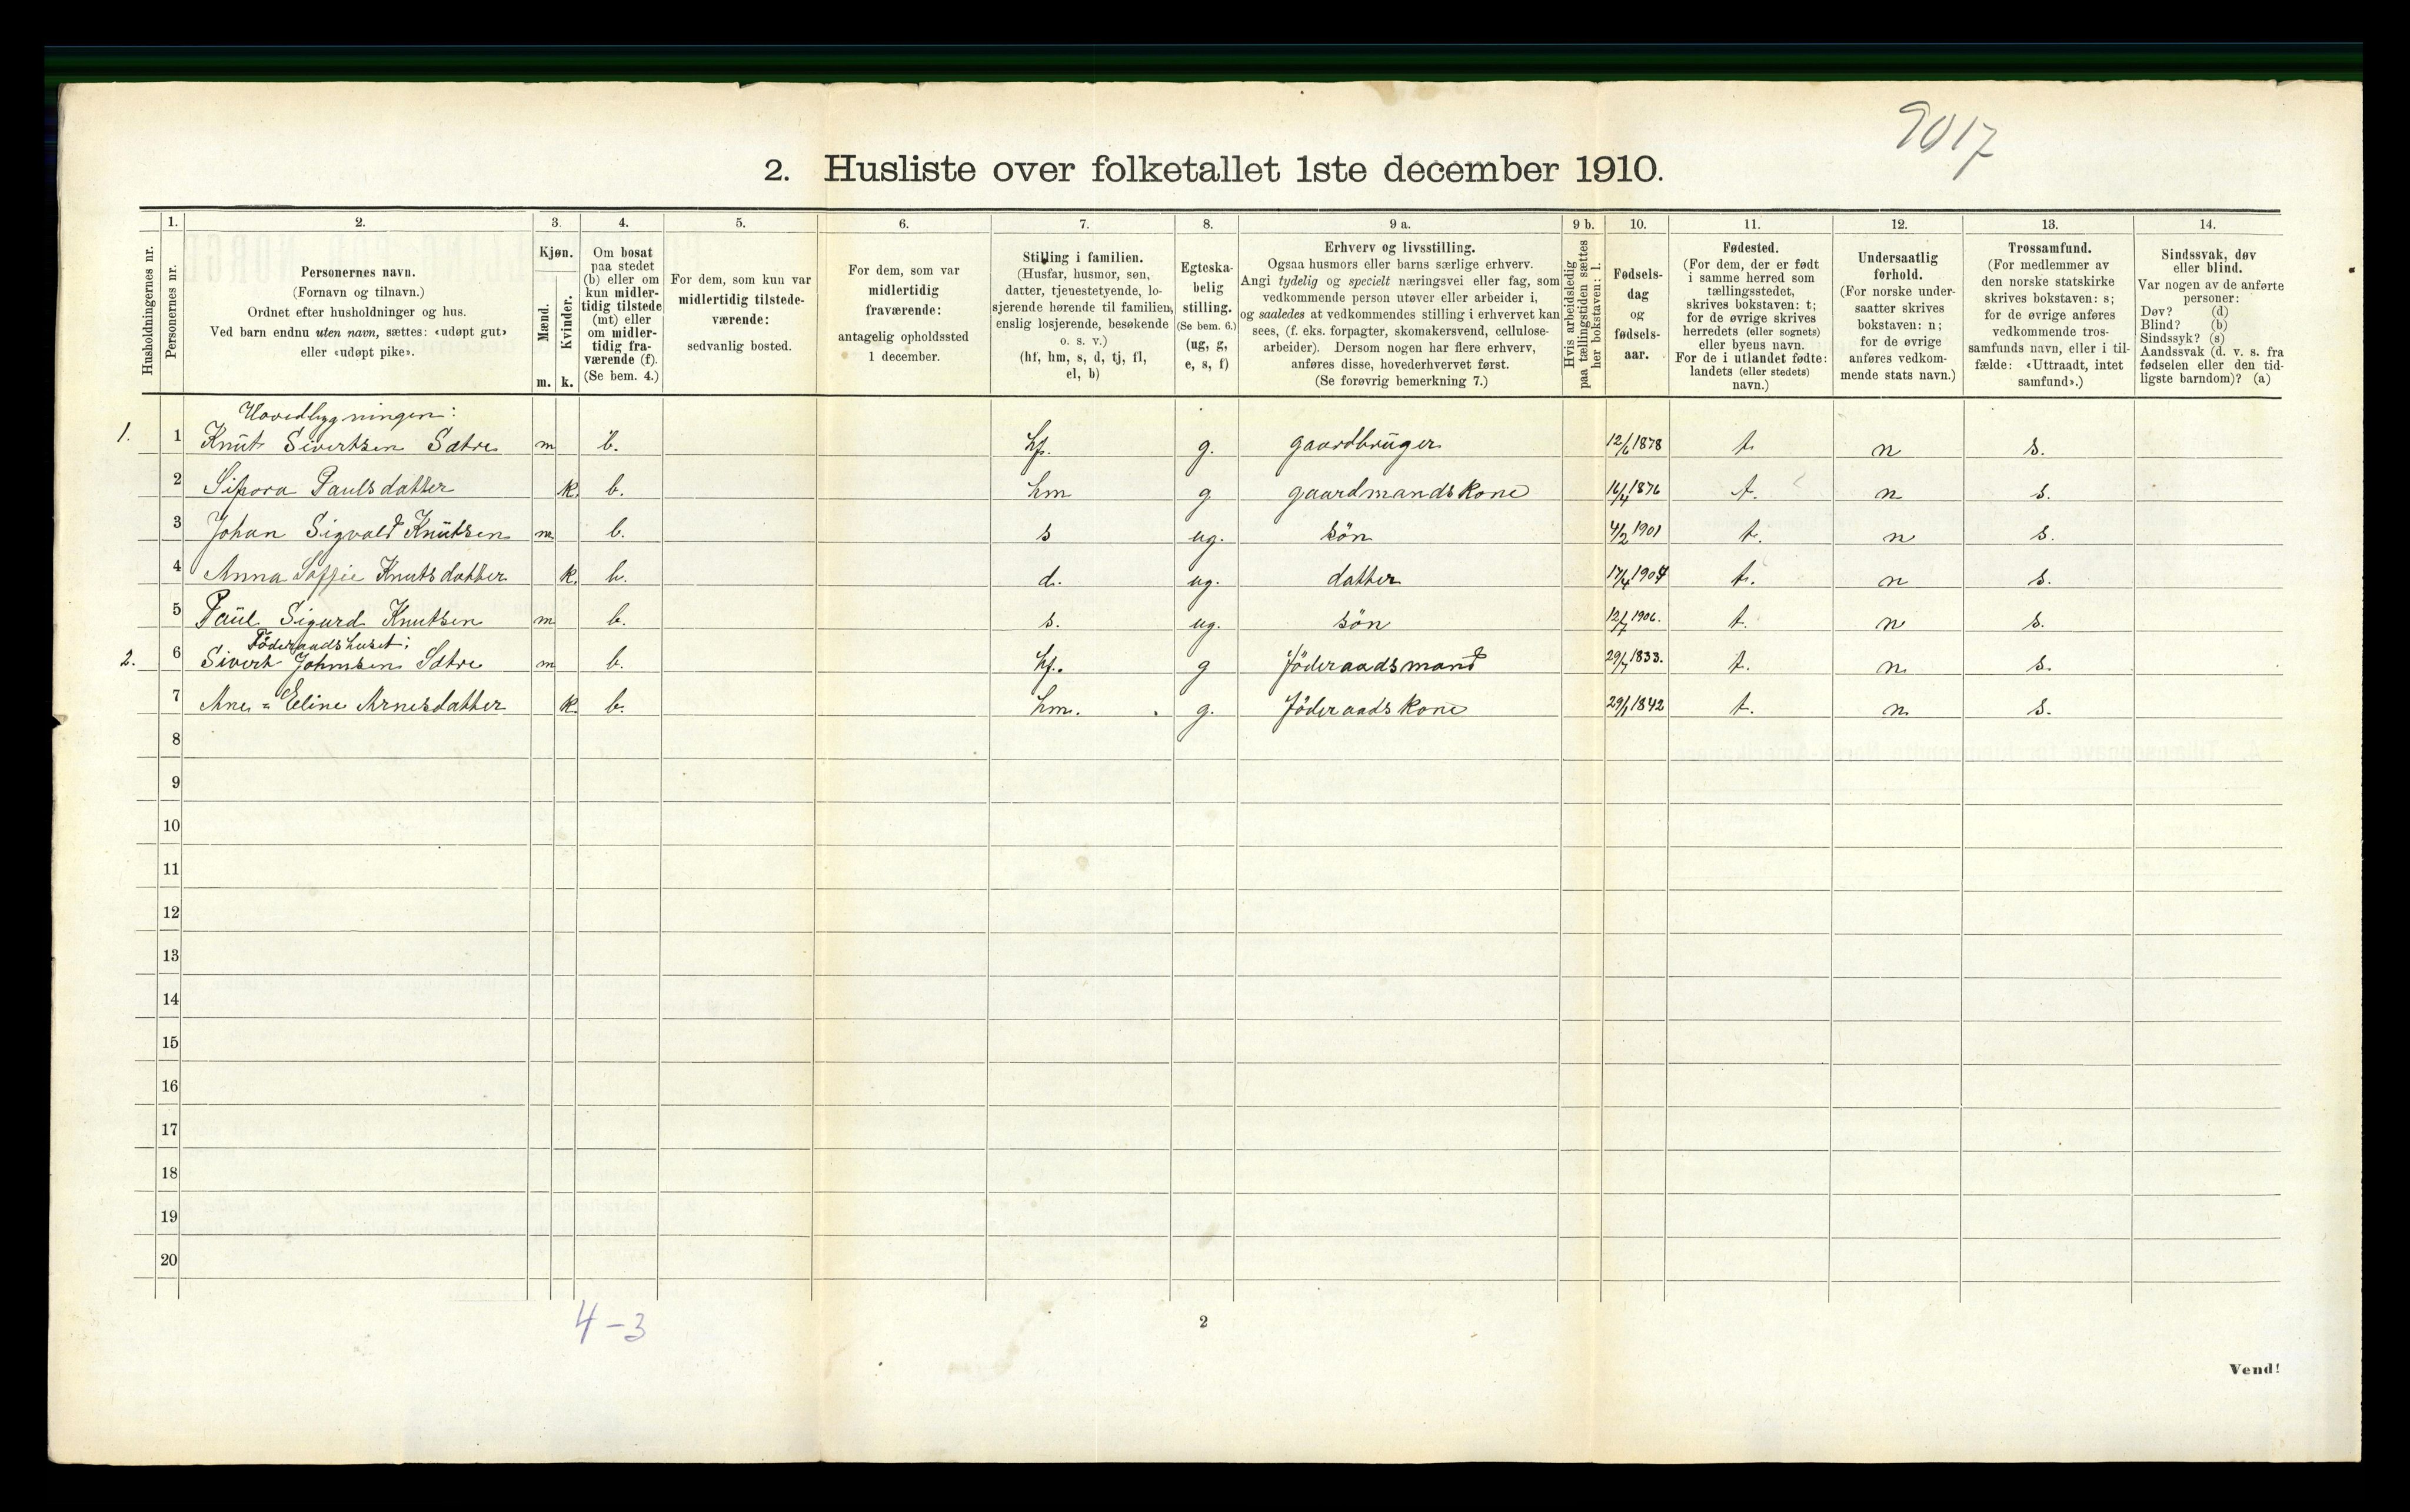 9017
2. Husliste over folketallet 1ste december 1910.
Husholdningernes nr.
1.
Personernes nr.
2.
Personernes navn.
(Fornavn og tilnavn.)
Ordnet efter husholdninger og hus.
Ved barn endnu uten navn, sættes: «udøpt gut»
eller «udøpt pike».
3.
Kjøn.
Mænd.
Kvinder.
m. k.
4.
Om bosat
paa stedet
(b) eller om
kun midler-
tidig tilstede
(mt) eller
om midler-
tidig fra-
værende (f).
(Se bem. 4.)
5.
For dem, som kun var
midlertidig tilstede-
værende:
sedvanlig bosted.
6.
For dem, som var
midlertidig
fraværende:
antagelig opholdssted
1 december.
7.
Stilling i familien.
(Husfar, husmor, søn,
datter, tjenestetyende, lo-
sjerende hørende til familien,
enslig losjerende, besøkende
o. s. v.)
(hf, hm, s, d, tj, fl,
el, b)
8.
Egteska-
belig
stilling.
(Se bem. 6.)
(ug, g,
e, s, f)
9 a.
Erhverv og livsstilling.
Ogsaa husmors eller barns særlige erhverv.
Angi tydelig og specielt næringsvei eller fag, som
vedkommende person utøver eller arbeider i,
og saaledes at vedkommendes stilling i erhvervet kan
sees, (f. eks. forpagter, skomakersvend, cellulose-
arbeider). Dersom nogen har flere erhverv,
anføres disse, hovederhvervet først.
(Se forøvrig bemerkning 7.)
9 b.
Hvis arbeidsledig
paa tællingstiden sættes
her bokstaven: l.
10.
Fødsels-
dag
og
fødsels-
aar.
11.
Fødested.
(For dem, der er født
i samme herred som
tællingsstedet,
skrives bokstaven: t;
for de øvrige skrives
herredets (eller sognets)
eller byens navn.
For de i utlandet fødte:
landets (eller stedets)
navn.)
12.
Undersaatlig
forhold.
(For norske under-
saatter skrives
bokstaven: n;
for de øvrige
anføres vedkom-
mende stats navn.)
13.
Trossamfund.
(For medlemmer av
den norske statskirke
skrives bokstaven: s;
for de øvrige anføres
vedkommende tros-
samfunds navn, eller i til-
fælde: «Uttraadt, intet
samfund».)
14.
Sindssvak, døv
eller blind.
Var nogen av de anførte
personer:
Døv? (d)
Blind? (b)
Sindssyk? (s)
Aandssvak (d. v. s. fra
fødselen eller den tid-
ligste barndom)? (a)
Hovedbygningen:
1. 1 Knut Sivertsen Sætre m b. hf. g. gaardbruger 12/6 1878 t. n s.
2 Sipora Paulsdatter k. b. hm g gaardmandskone 16/4 1876 t. n s.
3 Johan Sigvald Knutsen m b. s ug. søn 4/2 1901 t. n s.
4 Anna Soffie Knutsdatter k. b. d. ug. datter 17/4 1904 t. n s.
5 Paul Sigurd Knutsen m b. s. ug. søn 12/7 1906. t. n s.
Föderaadshuset:
2. 6 Sivert Johnsen Sætre m b. hf. g föderaadsmand 29/7 1833. t. n. s.
7 Ane = Eline Arnesdatter k. b. hm. g. föderaadskone 29/1 1842 t. n s.
8
9
10
11
12
13
14
15
16
17
18
19
20
4-3
2
Vend!